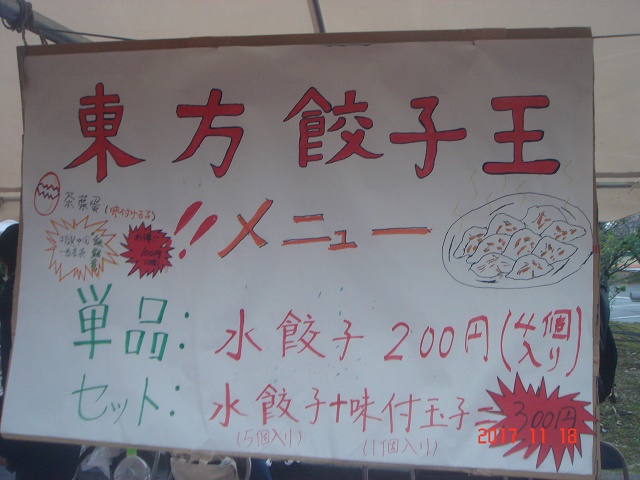 東方餃子王
茶葉蛋(味付け玉子)
!!メニュー
100円
単品: 水餃子 200円(4個入り)
セット: 水餃子+味付玉子=300円
(5個入り) (1個入り)
2017 11 18